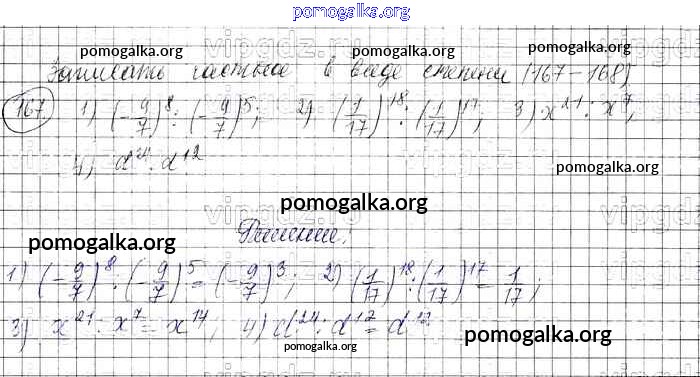 pomogalka.org
pomogalka.org pomogalka.org pomogalka.org
Записать частное в виде степени (167-168)
167 1) (-9/7)^8 : (-9/7)^5; 2) (1/17)^18 : (1/17)^17; 3) x^21 : x^7;
4) d^24 : d^12 pomogalka.org
pomogalka.org
Решение:
pomogalka.org
1) (-9/7)^8 : (-9/7)^5 = (-9/7)^3; 2) (1/17)^18 : (1/17)^17 = 1/17;
3) x^21 : x^7 = x^14; 4) d^24 : d^12 = d^12
pomogalka.org
pomogalka.org